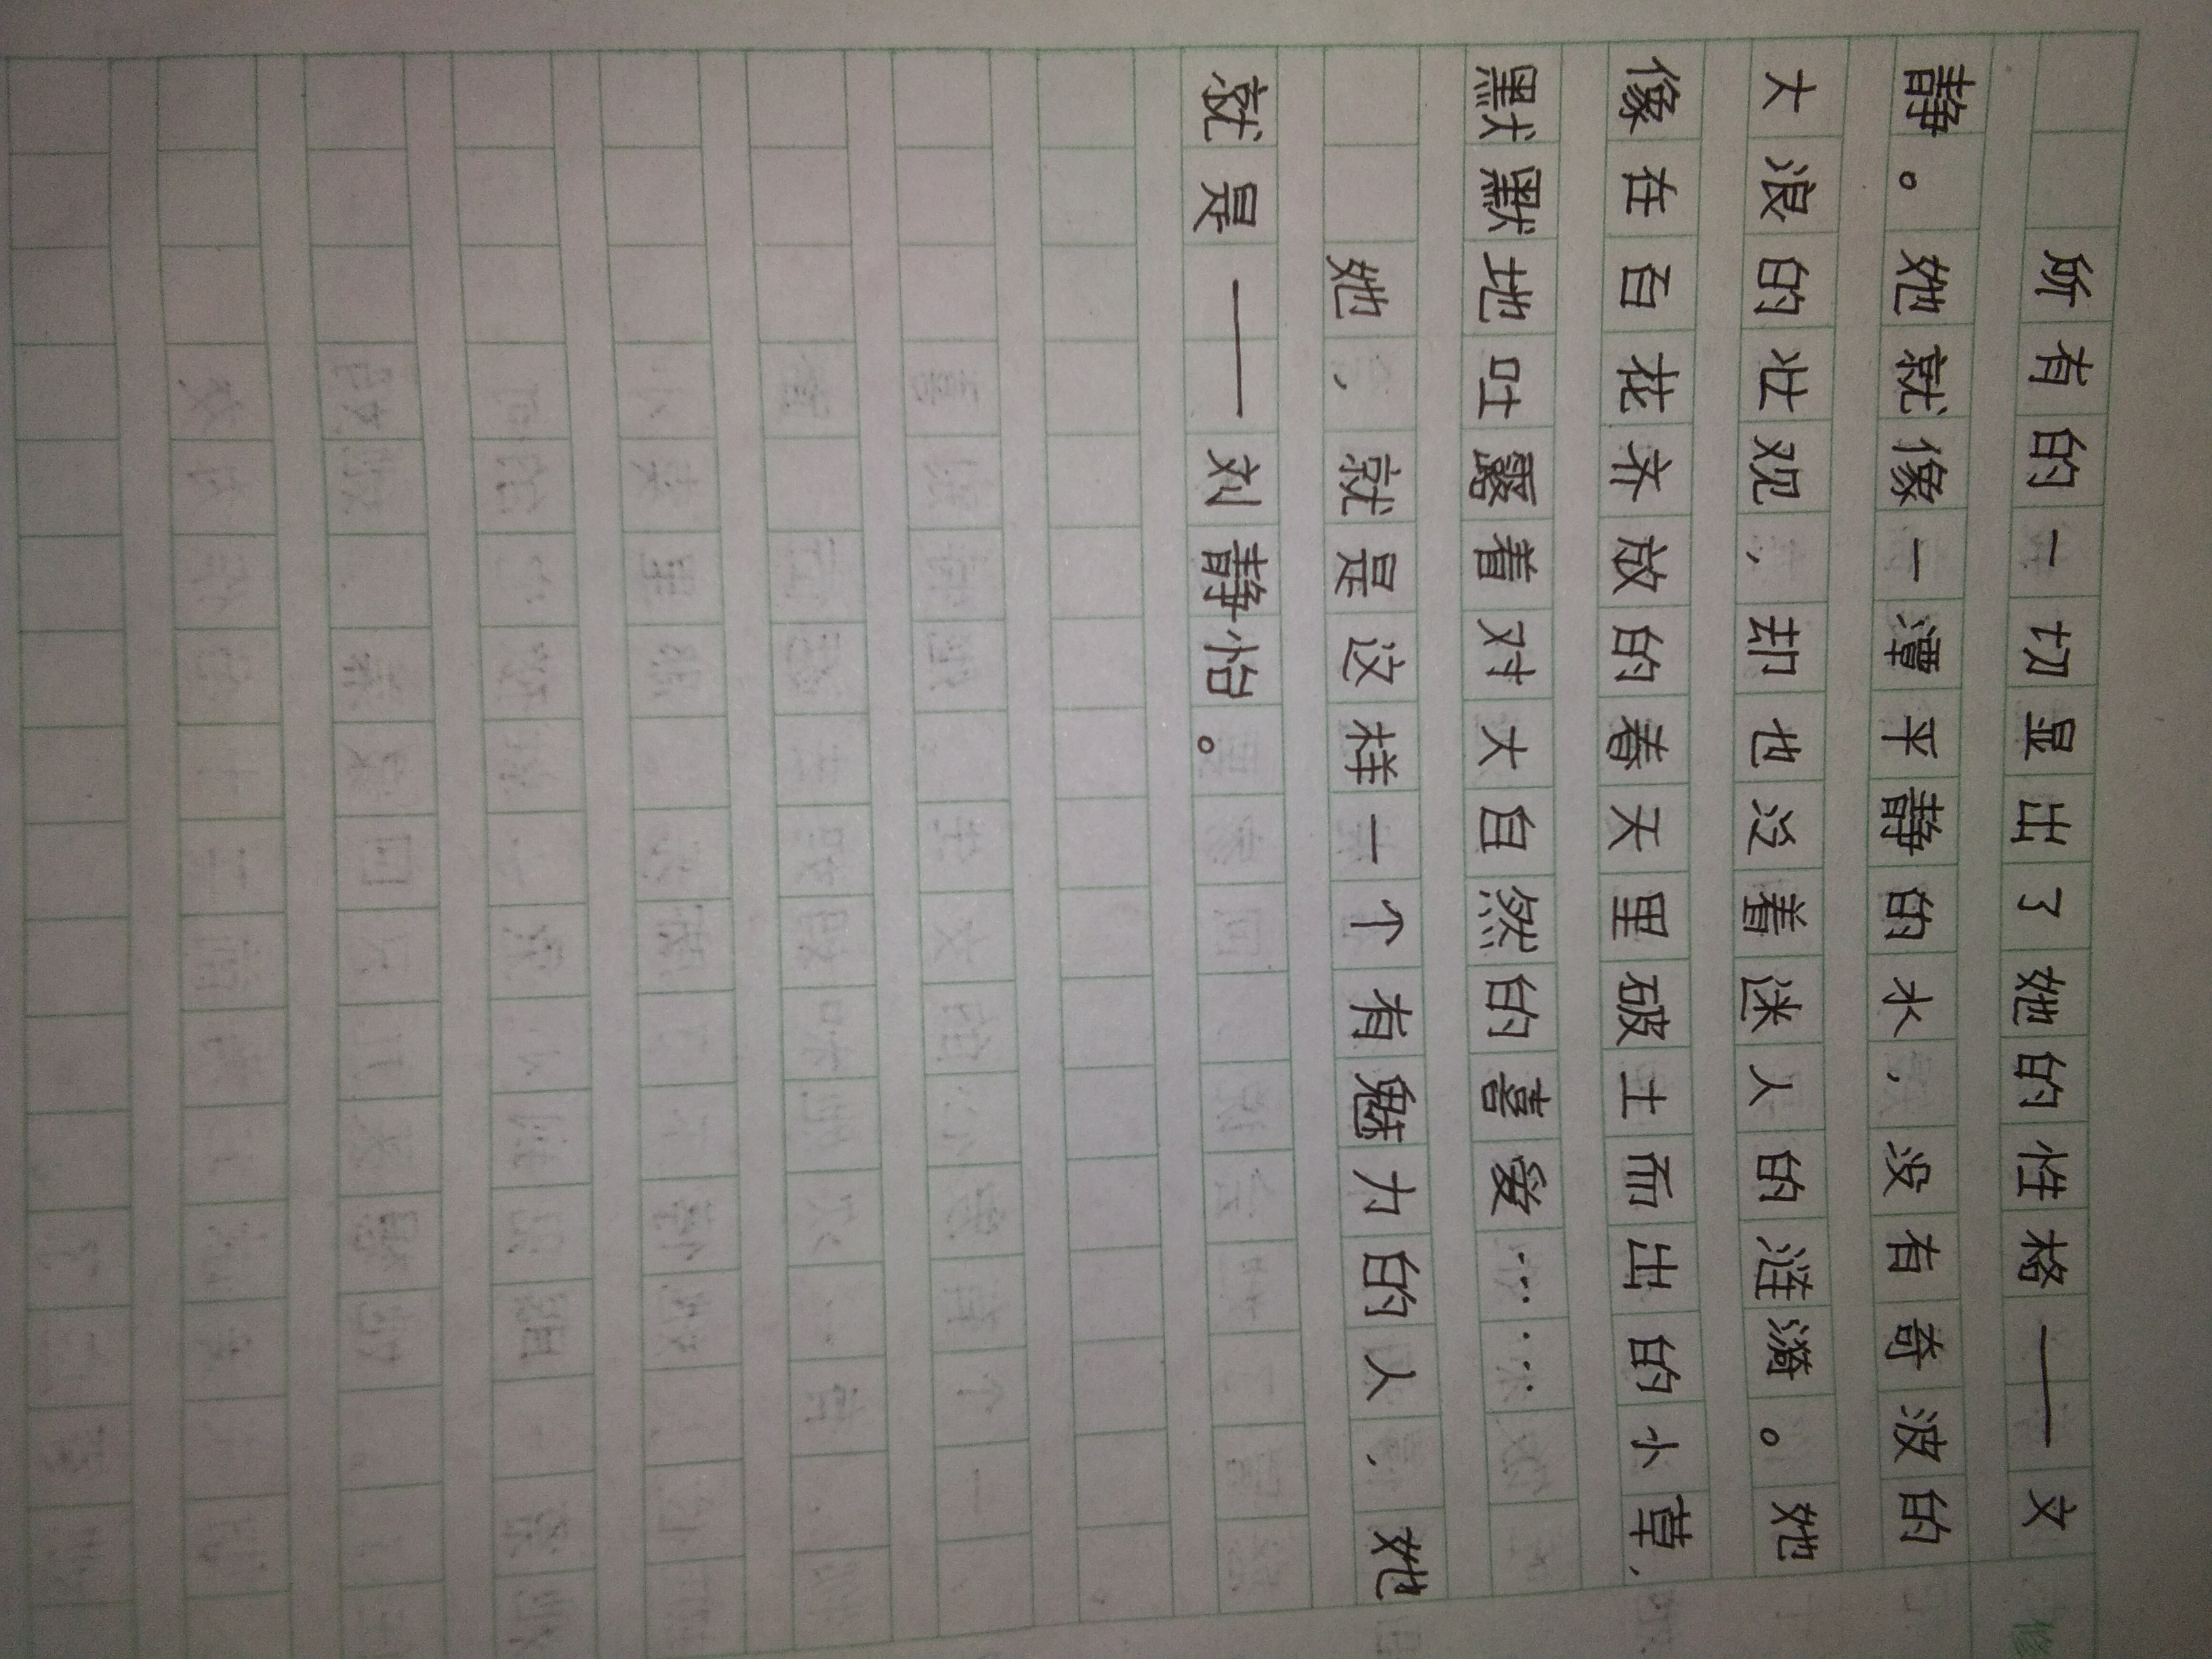 所有的一切显出了她的性格——文
静。她就像一潭平静的水，没有奇波的
大浪的壮观，却也泛着迷人的涟漪。她
像在百花齐放的春天里破土而出的小草，
默默地吐露着对大自然的喜爱……
她，就是这样一个有魅力的人，她
就是——刘静怡。